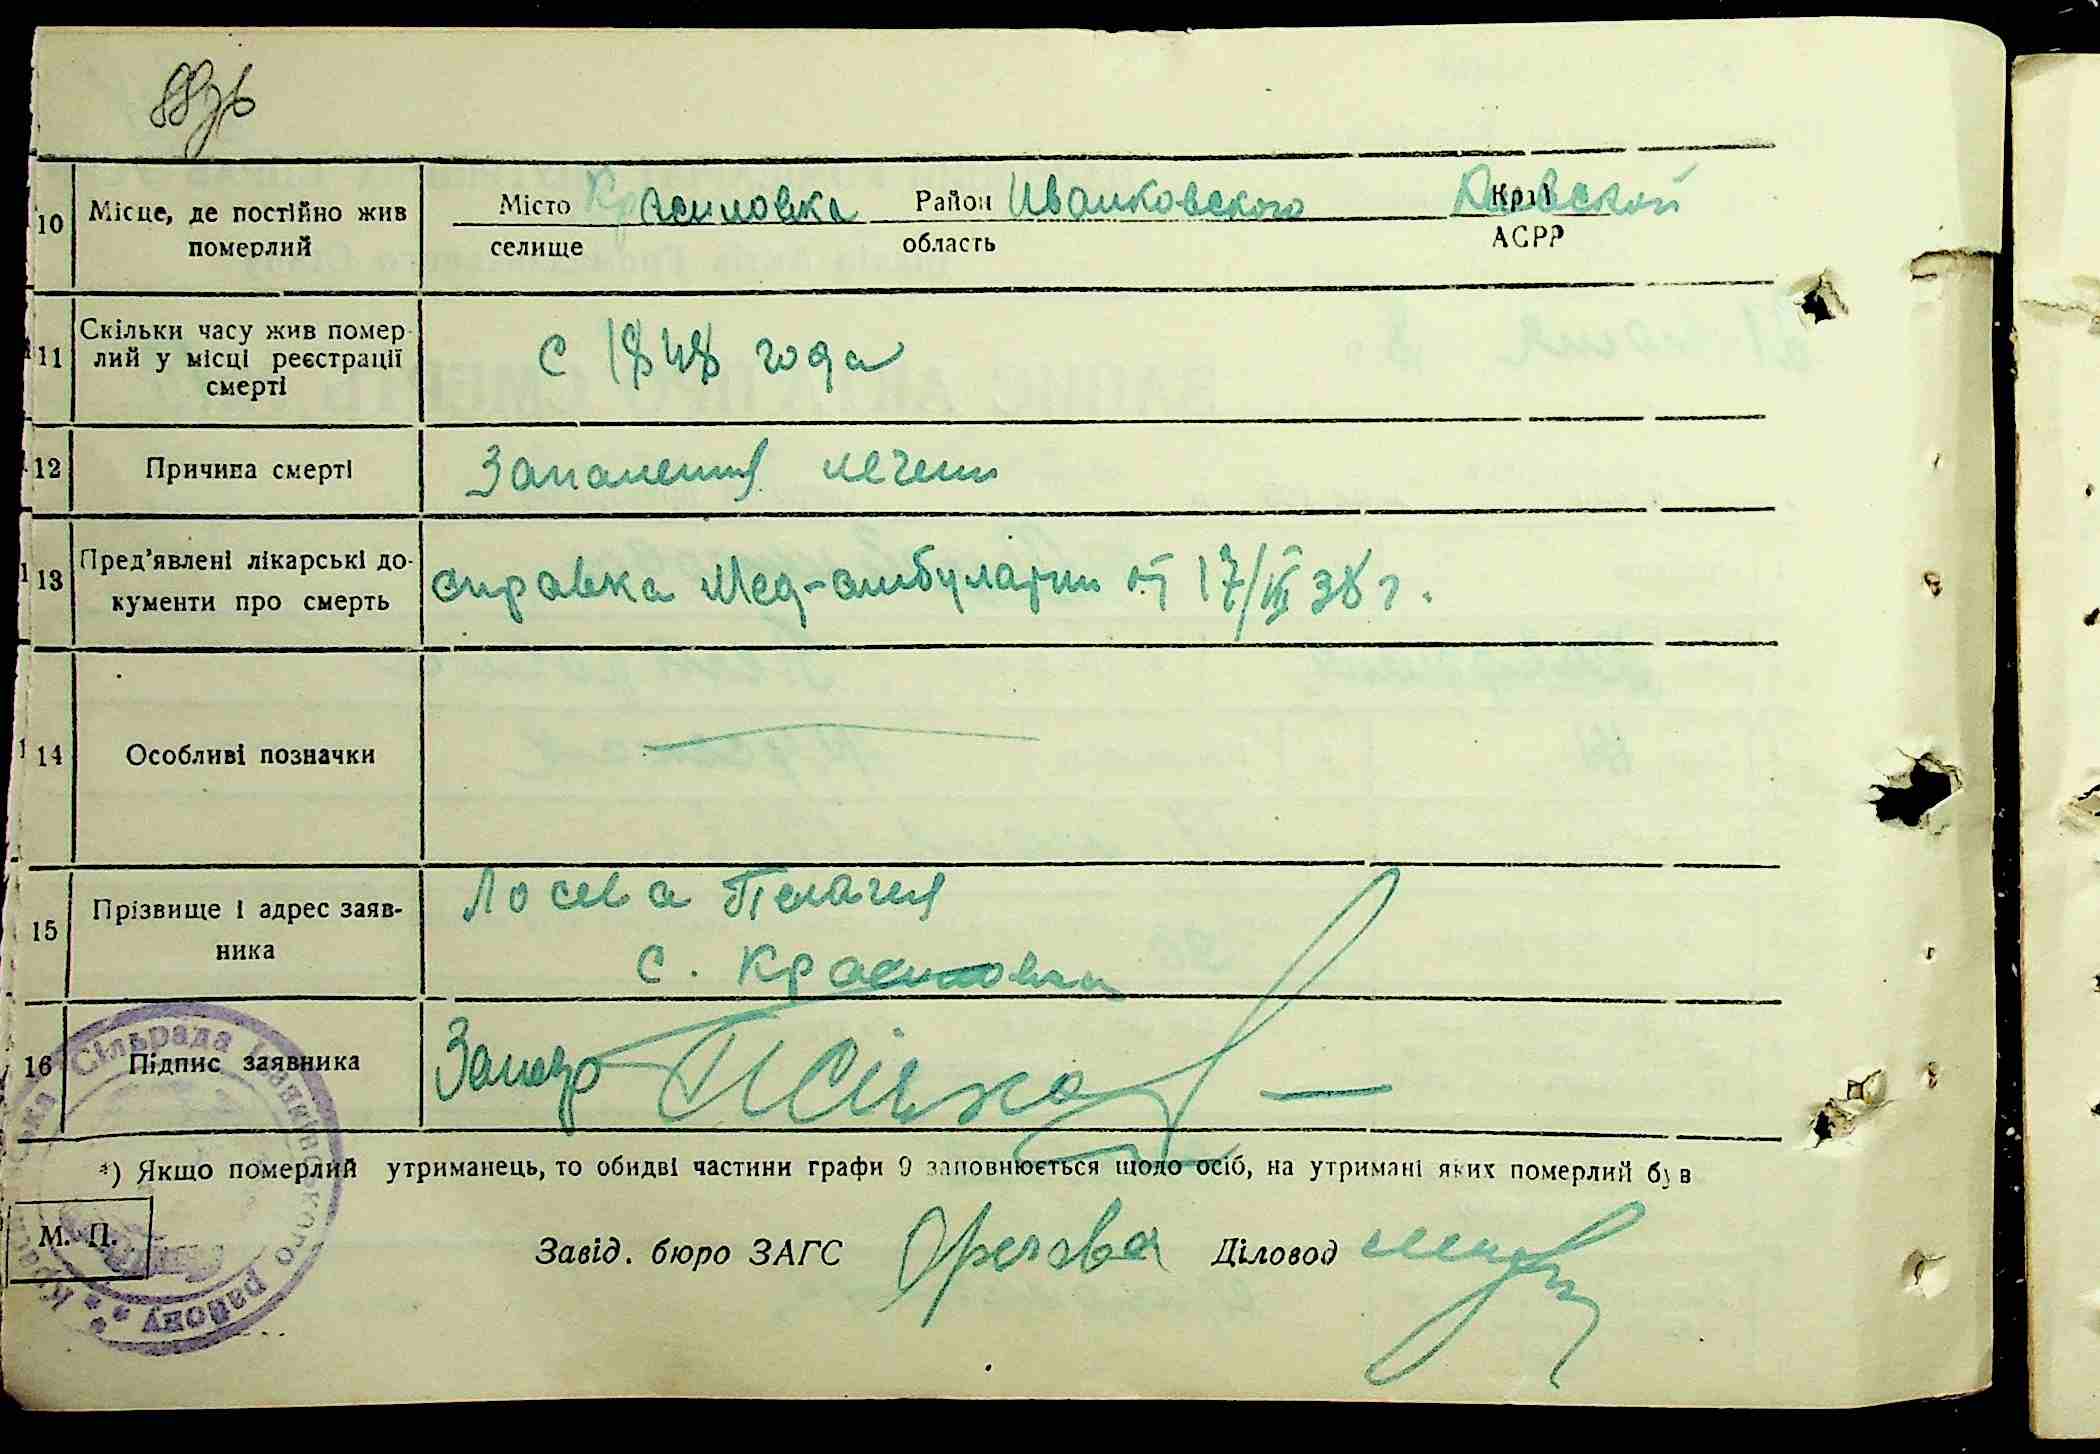 10 Місце, де постійно жив померлий
Місто Красиловка Район Иванковского Край Киевской
селище область АСРР
11 Скільки часу жив помер-
лий у місці реєстрації
смерті
с 1848 года
12 Причина смерті
Запаления печени
13 Пред’явлені лікарські до-
кументи про смерть
справка Мед-амбулатрии от 17/III 38 г.
14 Особливі позначки
15 Прізвище і адрес заяв-
ника
Лосева Пелагия
с. Красиловка
16 Підпис заявника
*) Якщо померлий утриманець, то обидві частини графи 9 заповнюється щодо осіб, на утримані яких померлий був
М. П.
Завід. бюро ЗАГС Діловод
Сільрада Іванківського району